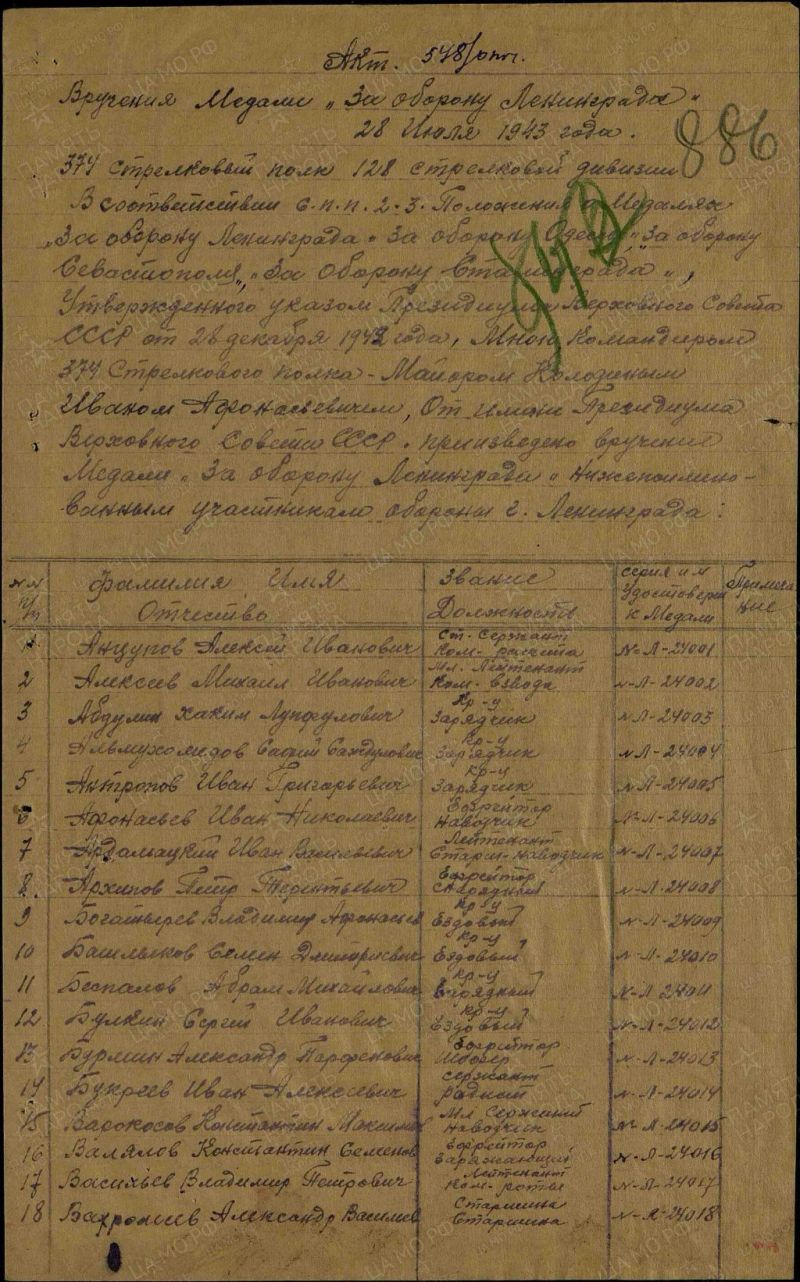 Акт. 548/опт.
Вручения Медали „За оборону Ленинграда"
28 Июля 1943 года.
886
374 стрелковый полк 128 стрелковой дивизии
В соответствии с п.п. 2-3. Положения о Медалях
„За оборону Ленинграда" За оборону Одессы", „За оборону
Севастополя", „За оборону Сталинграда",
Утвержденного указом Президиума Верховного Совета
СССР от 28 декабря 1942 года, Мною Командиром
374 Стрелкового полка - Майором Колодиным
Иваном Афонасьевичем, От имени Президиума
Верховного Совета СССР. произведено вручение
Медали „За оборону Ленинграда" нижепоимено-
ванным участникам обороны г. Ленинграда:
№№ п/п Фамилия, Имя Отчество Звание Должность Серия и № Удостоверен к Медали Примеча ние
1 Анцупов Алексей Иванович Ст. Сержант Ком. расчета №Л-24001
2 Алексеев Михаил Иванович Мл. Лейтенант Ком. взвода №Л-24002
3 Абдулин Хаким Лутфулович Кр-ц Зарядчик №Л-24003
4 Кр-ц Зарядчик №Л-24004
5 Антропов Иван Григорьевич Кр-ц Зарядчик №Л-24005
6 Афонасьев Иван Николаевич Ефрейтор Наводчик №Л-24006
7 Ардамацкий Иван Васильевич Лейтенант Старш-наводчик №Л-24007
8. Архипов Петр Терентьевич Ефрейтор №Л-24008
9 Богатырев Владимир Афонасьев Кр-ц Ездовый №Л-24009
10 Башлыков Семен Дмитриевич Кр-ц Ездовый №Л-24010
11 Беспалов Абрам Михайлович Кр-ц №Л-24011
12 Булкин Сергей Иванович Кр-ц Ездовый №Л-24012
13 Бурмин Александр Парфенович Ефрейтор Шофер №Л-24013
14 Букреев Иван Алексеевич Сержант Радист №Л-24014
15 Варокосов Константин Максимов Мл Сержант Наводчик №Л-24015
16 Валялов Константин Семенов Ефрейтор Заряжающий №Л-24016
17 Васильев Владимир Петрович Лейтенант Ком-роты №Л-24017
18 Александр Василев Старшина Старшина №Л-24018